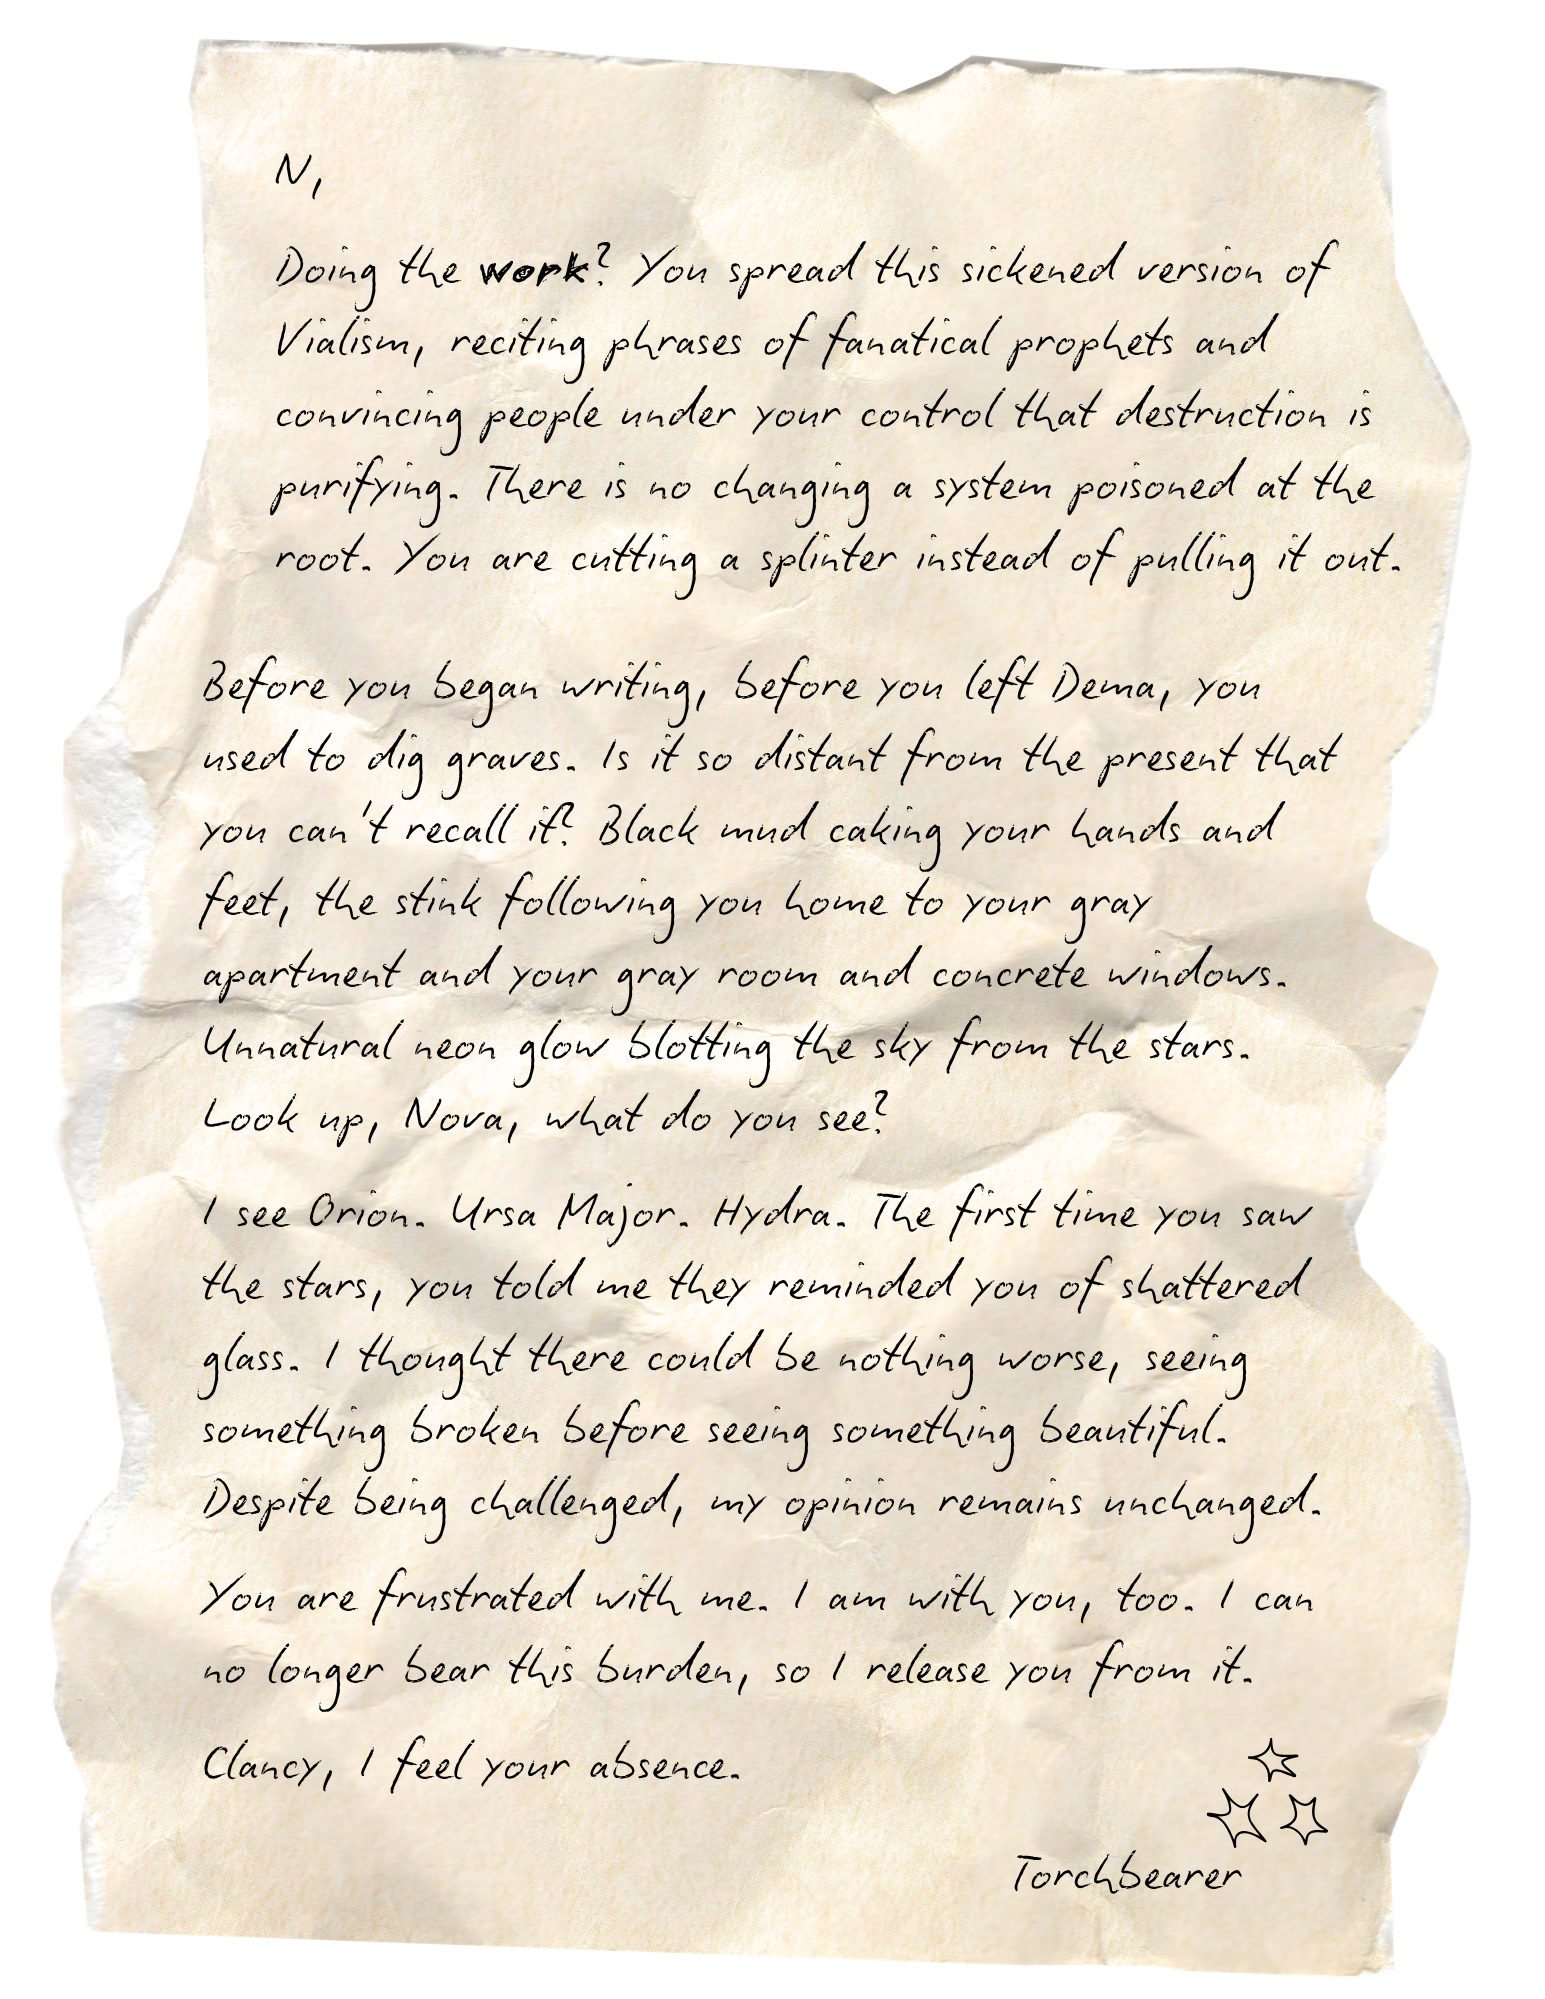 N,
Doing the work? You spread this sickened version of
Vialism, reciting phrases of fanatical prophets and
convincing people under your control that destruction is
purifying. There is no changing a system poisoned at the
root. You are cutting a splinter instead of pulling it out.
Before you began writing, before you left Dema, you
used to dig graves. Is it so distant from the present that
you can't recall it? Black mud caking your hands and
feet, the stink following you home to your gray
apartment and your gray room and concrete windows.
Unnatural neon glow blotting the sky from the stars.
Look up, Nova, what do you see?
I see Orion. Ursa Major. Hydra. The first time you saw
the stars, you told me they reminded you of shattered
glass. I thought there could be nothing worse, seeing
something broken before seeing something beautiful.
Despite being challenged, my opinion remains unchanged.
You are frustrated with me. I am with you, too. I can
no longer bear this burden, so I release you from it.
Clancy, I feel your absence.
Torchbearer